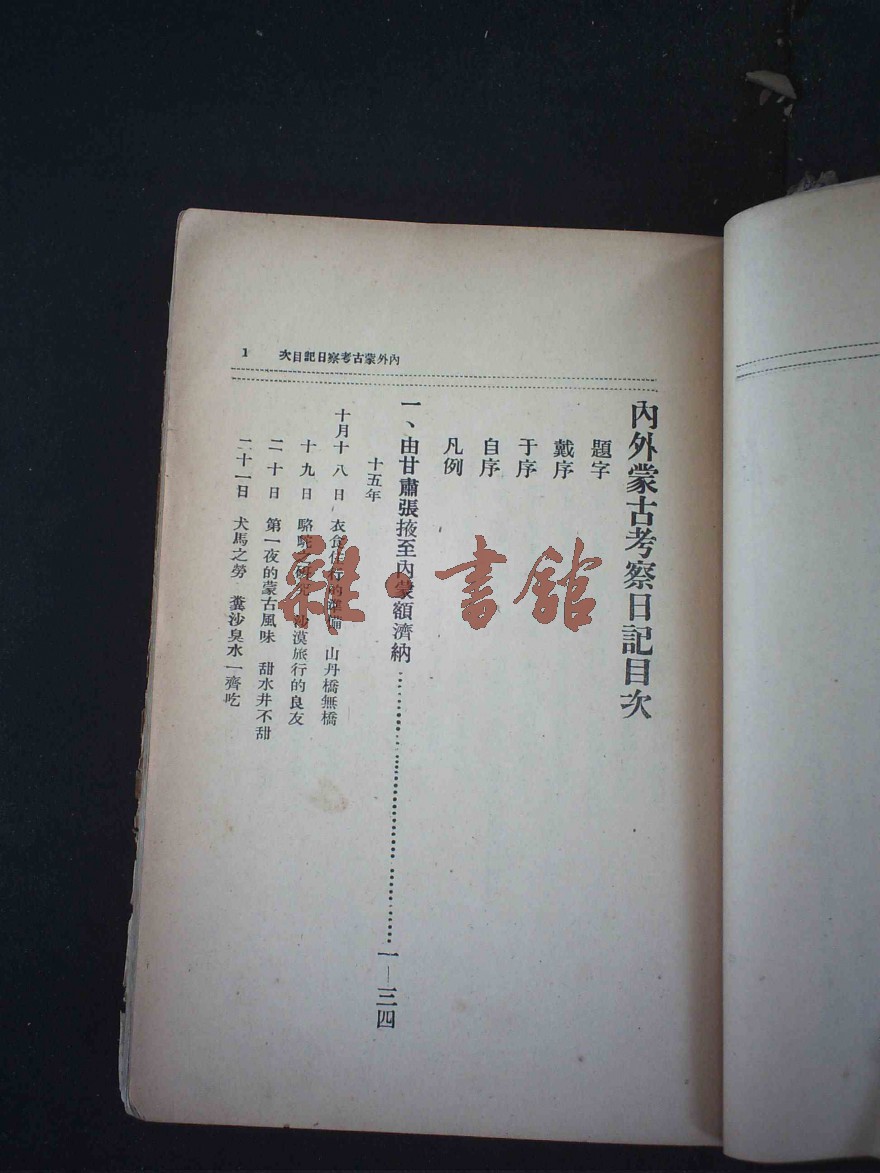 內外蒙古考察日記目次
1
內外蒙古考察日記目次
題字
戴序
于序
自序
凡例
一、由甘肅張掖至內蒙額濟納……一—三四
十五年
十月十八日 衣食住行的準備 山丹橋無橋
十九日 駱駝之研究 沙漠旅行的良友
二十日 第一夜的蒙古風味 甜水井不甜
二十一日 犬馬之勞 糞沙臭水一齊吃
雜·書館